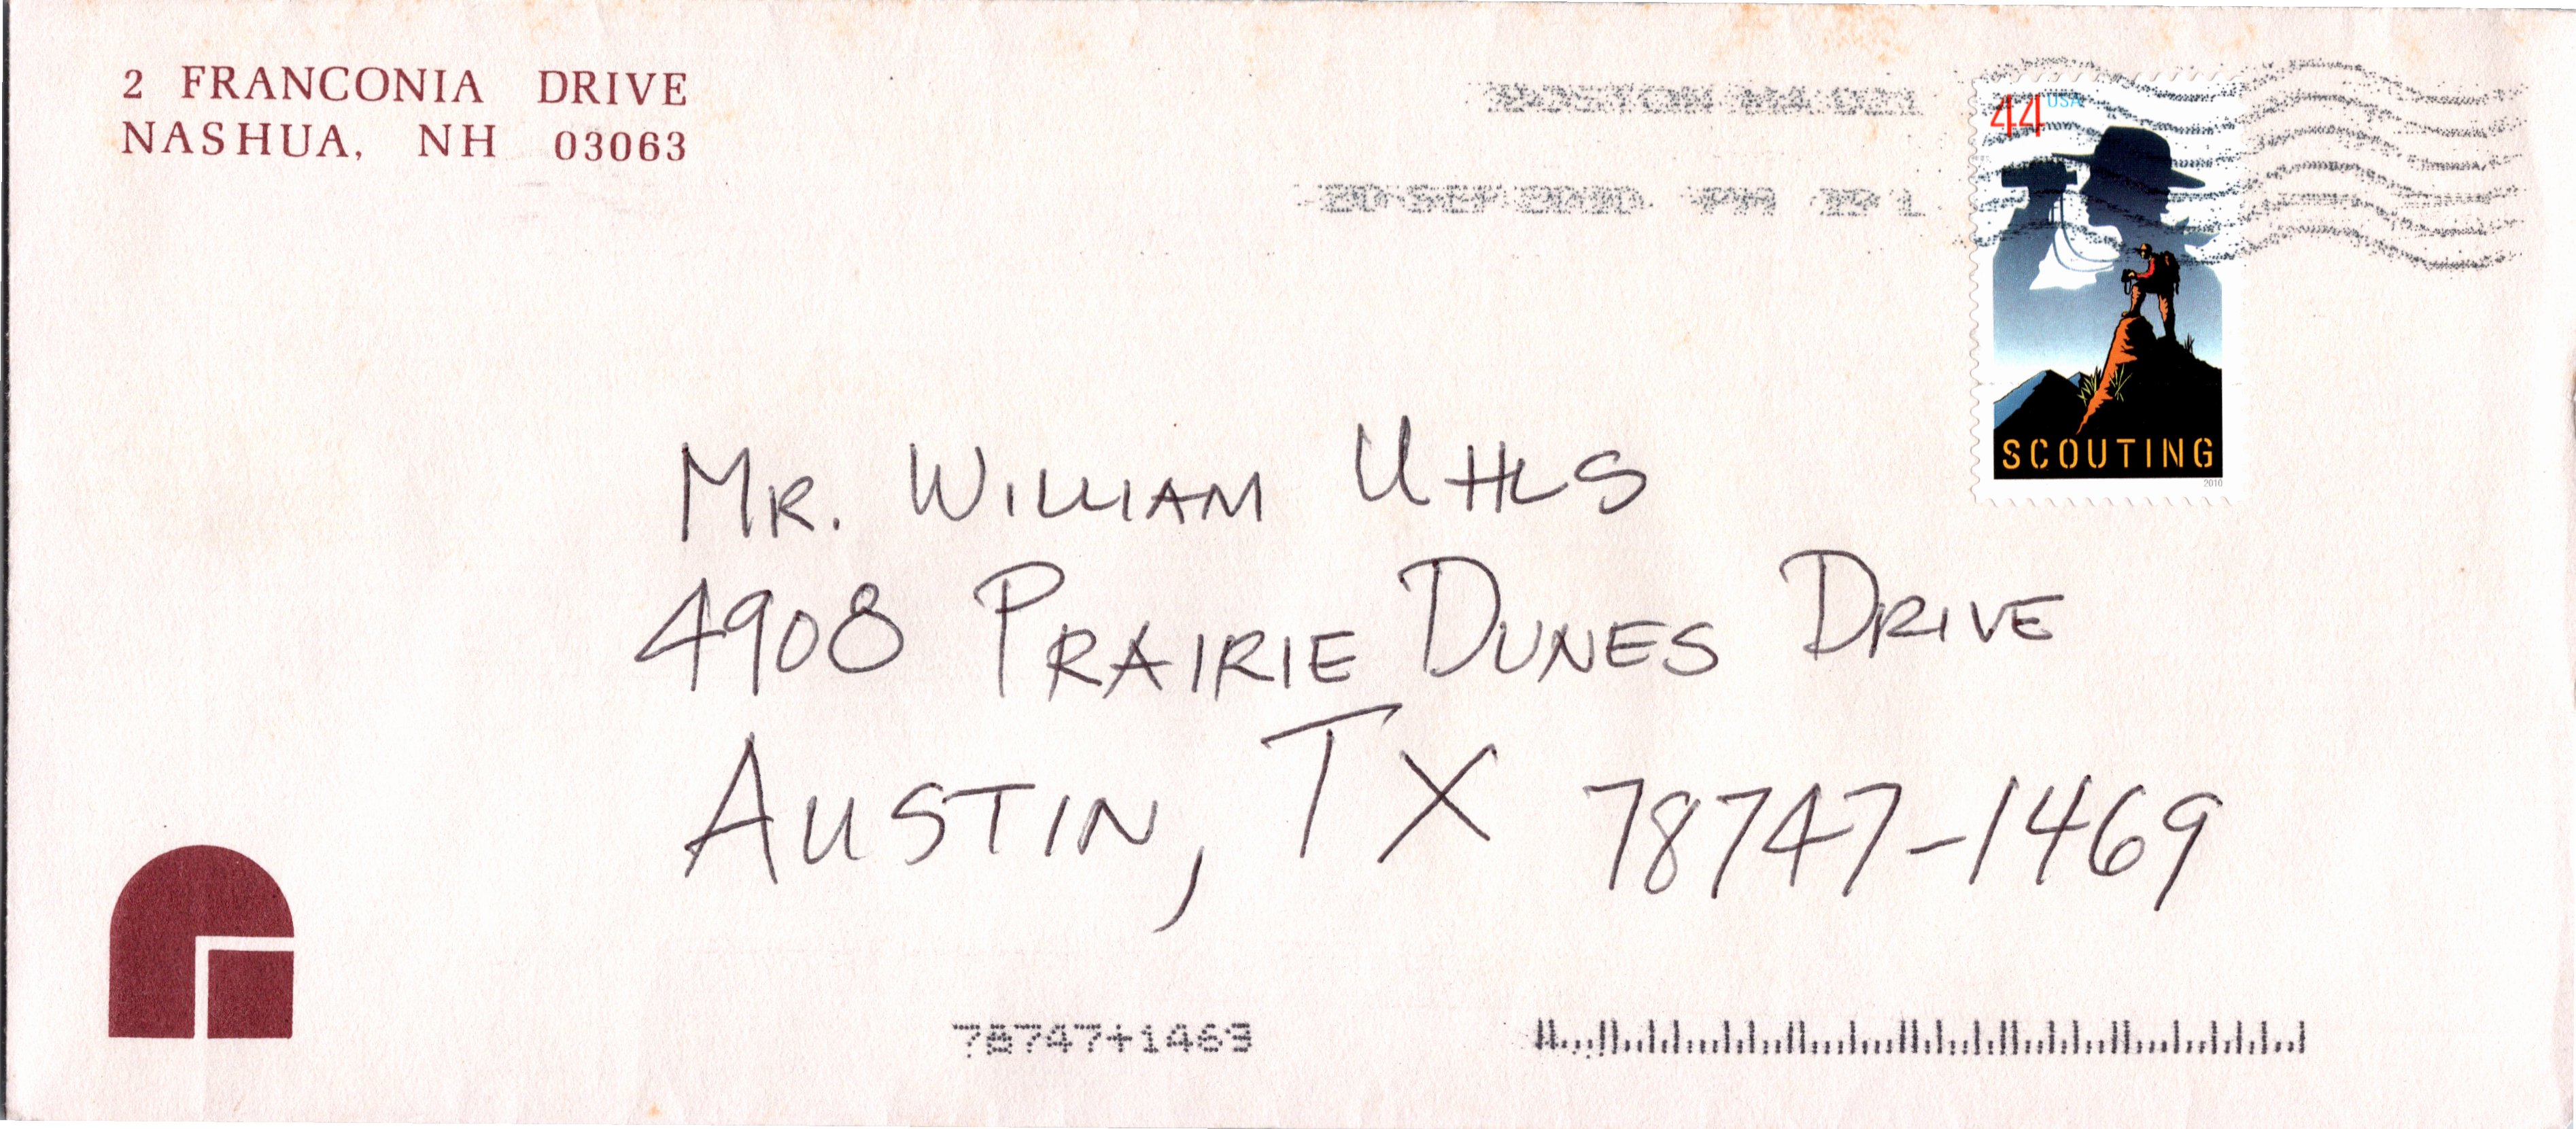 2 FRANCONIA DRIVE
NASHUA, NH 03063
BOSTON MA 021
20 SEP 2010 PM 19 L
44 USA
SCOUTING
2010
MR. WILLIAM UHLS
4908 PRAIRIE DUNES DRIVE
AUSTIN, TX 78747-1469
78747+1469